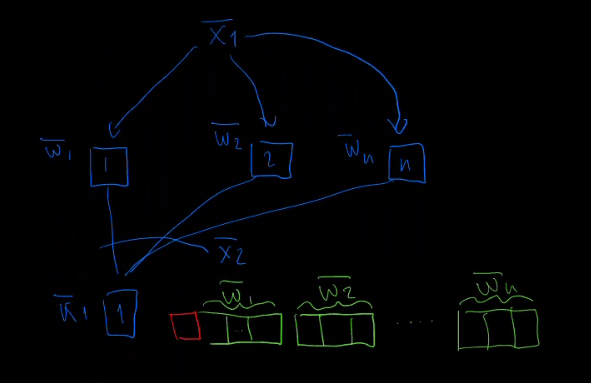 X̅1
W̅1 1 W̅2 2 W̅n n
X̅2
1 W̅1 W̅2 .... W̅n